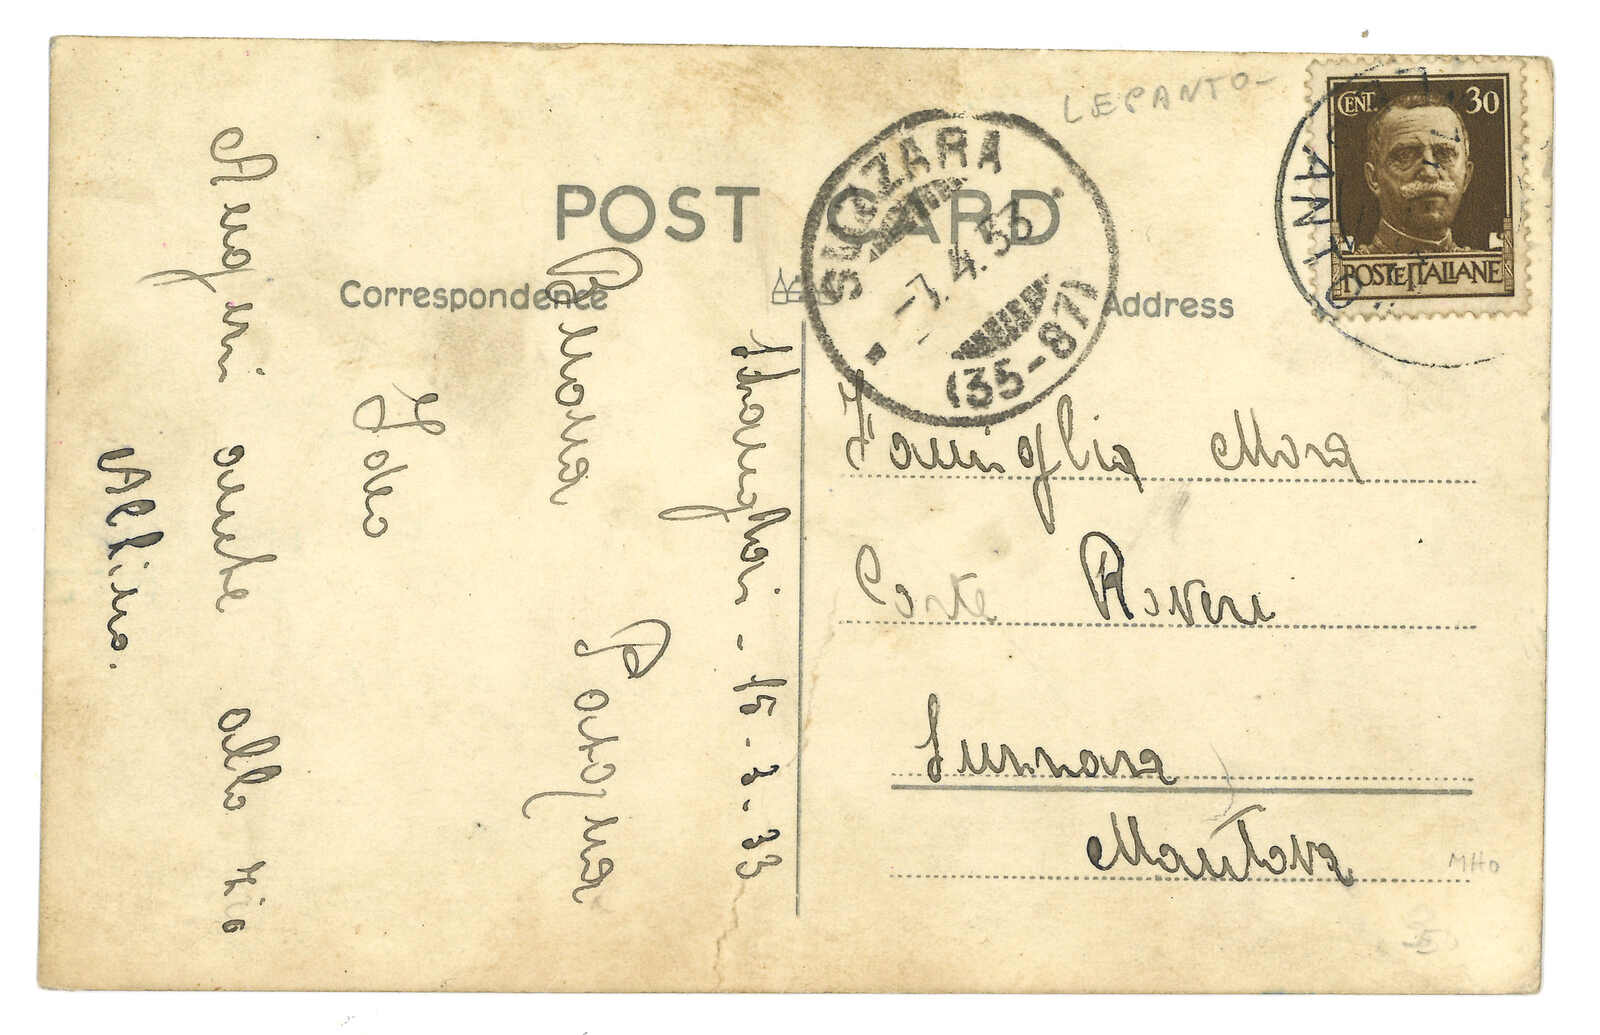 POST CARD
Correspondence
Address
LEPANTO-
CENT. 30
POSTE ITALIANE
LEPANTO
SUZZARA
-7.4.33
(35-87)
Shanghai - 15-3-33
Buona Pasqua
Ideo
Auguri anche allo zio
Albino.
Famiglia Mora
Corte Roveri
Suzzara
Mantova
MHO